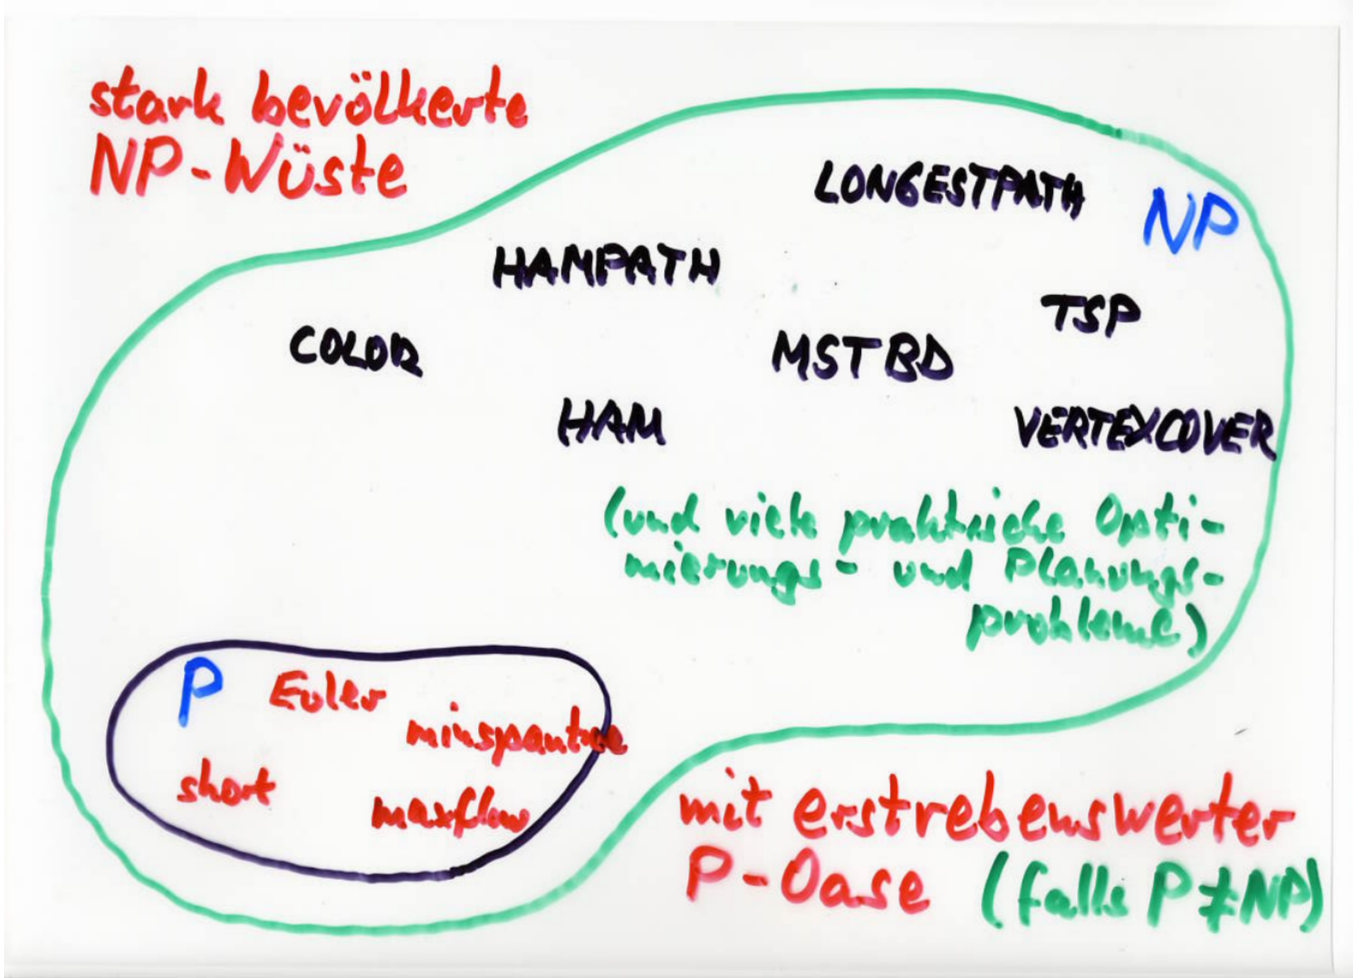 stark bevölkerte
NP-Wüste
LONGESTPATH
NP
HAMPATH
TSP
COLOR
MSTBD
HAM
VERTEXCOVER
(und viele praktische Opti-
mierungs- und Planungs-
probleme)
P
Euler
minspantree
short
maxflow
mit erstrebenswerter
P-Oase (falls P ≠ NP)